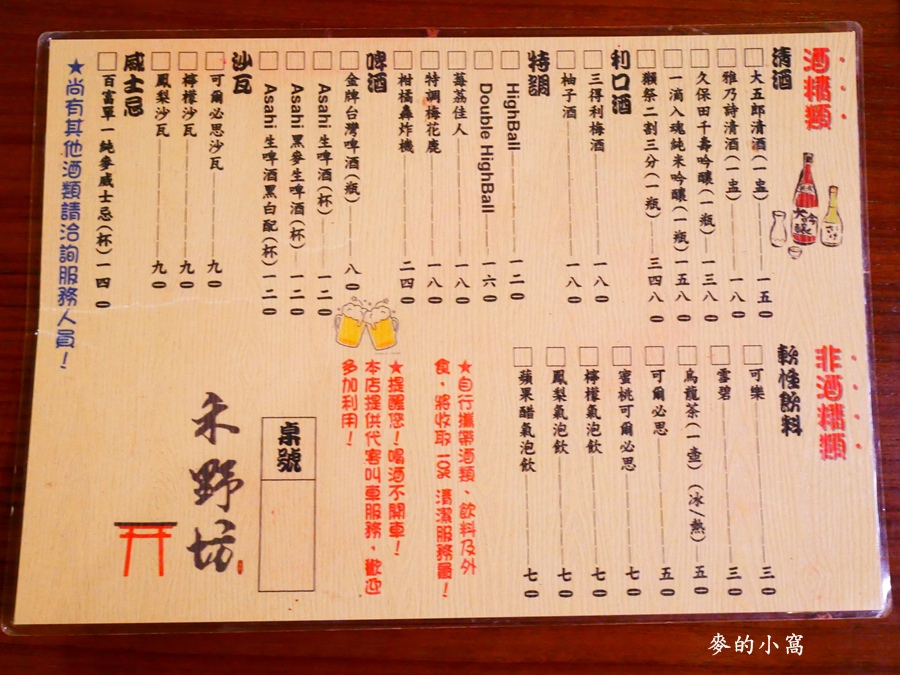 酒精類
清酒
大五郎清酒(一盅)一五0
雅乃詩清酒(一盅)一八0
久保田千壽吟釀(一瓶)一三八0
一滴入魂純米吟釀(一瓶)一五八0
獺祭二割三分(一瓶)三四八0
利口酒
三得利梅酒 一八0
柚子酒 一八0
特調
HighBall 一二0
Double HighBall 一六0
莓荔佳人 一八0
特調梅花鹿 一八0
柑橘轟炸機 二四0
啤酒
金牌台灣啤酒(瓶) 八0
Asahi 生啤酒(杯) 一二0
Asahi 黑麥生啤酒(杯) 一二0
Asahi 生啤酒黑白配(杯) 一二0
沙瓦
可爾必思沙瓦 九0
檸檬沙瓦 九0
鳳梨沙瓦 九0
威士忌
百富單一純麥威士忌(杯) 一四0
★尚有其他酒類請洽詢服務人員!
非酒精類
軟性飲料
可樂 三0
雪碧 三0
烏龍茶(一壺)(冰/熱) 五0
可爾必思 五0
蜜桃可爾必思 七0
檸檬氣泡飲 七0
鳳梨氣泡飲 七0
蘋果醋氣泡飲 七0
★自行攜帶酒類、飲料及外
食,將收取10% 清潔服務費!
★提醒您!喝酒不開車!
本店提供代客叫車服務,歡迎
多加利用!
桌號
禾野坊
麥的小窩